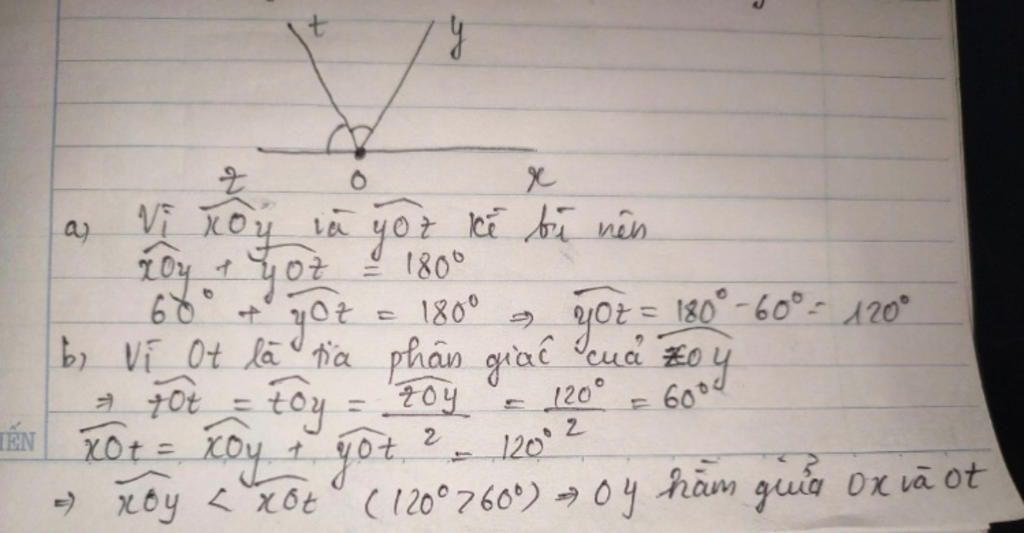 t y
z O x
a) Vì xOy và yOz kề bù nên
xOy + yOz = 180°
60° + yOz = 180° ⇒ yOz = 180° - 60° = 120°
b) Vì Ot là tia phân giác của zOy
⇒ zOt = tOy = zOy/2 = 120°/2 = 60°
xOt = xOy + yOt = 120°
⇒ xOy < xOt (120° > 60°) ⇒ Oy nằm giữa Ox và Ot
IẾN